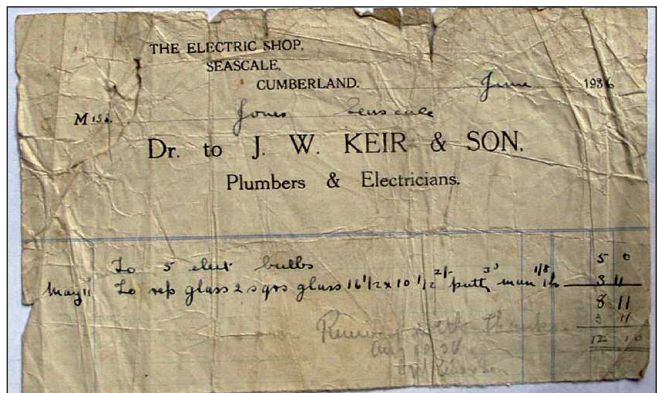 THE ELECTRIC SHOP,
SEASCALE,
CUMBERLAND.
June 1936
Miss Jones Seascale
Dr. to J. W. KEIR & SON.
Plumbers & Electricians.
To 5 elect bulbs 5 0
May 11 To rep glass 2 sqrs glass 16 1/2 x 10 1/2 2/- putty 3d man 1/8 3 11
8 11
3 11
12 10
Received with thanks